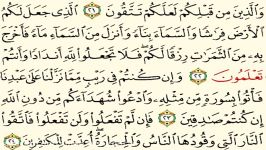 وَالَّذِينَ مِن قَبْلِكُمْ لَعَلَّكُمْ تَتَّقُونَ ٢١ الَّذِي جَعَلَ لَكُمُ
الْأَرْضَ فِرَاشًا وَالسَّمَاءَ بِنَاءً وَأَنزَلَ مِنَ السَّمَاءِ مَاءً فَأَخْرَجَ
بِهِ مِنَ الثَّمَرَاتِ رِزْقًا لَّكُمْ فَلَا تَجْعَلُوا لِلَّهِ أَندَادًا وَأَنتُمْ
تَعْلَمُونَ ٢٢ وَإِن كُنتُمْ فِي رَيْبٍ مِّمَّا نَزَّلْنَا عَلَىٰ عَبْدِنَا
فَأْتُوا بِسُورَةٍ مِّن مِّثْلِهِ وَادْعُوا شُهَدَاءَكُم مِّن دُونِ اللَّهِ
إِن كُنتُمْ صَٰدِقِينَ ٢٣ فَإِن لَّمْ تَفْعَلُوا وَلَن تَفْعَلُوا فَاتَّقُوا
النَّارَ الَّتِي وَقُودُهَا النَّاسُ وَالْحِجَارَةُ أُعِدَّتْ لِلْكَٰفِرِينَ ٢٤